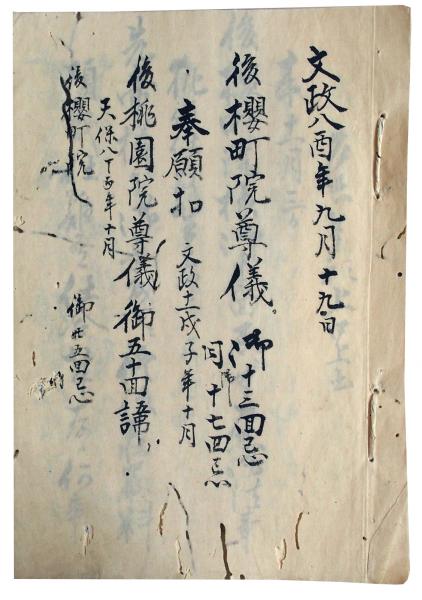 文政八酉年九月十九日
後櫻町院尊儀 御十三回忌
同十七回忌
奉願扣 文政十一戊子年十月
後桃園院尊儀 御五十回諱
天保八丁酉年十月
後櫻町院 御廿五回忌